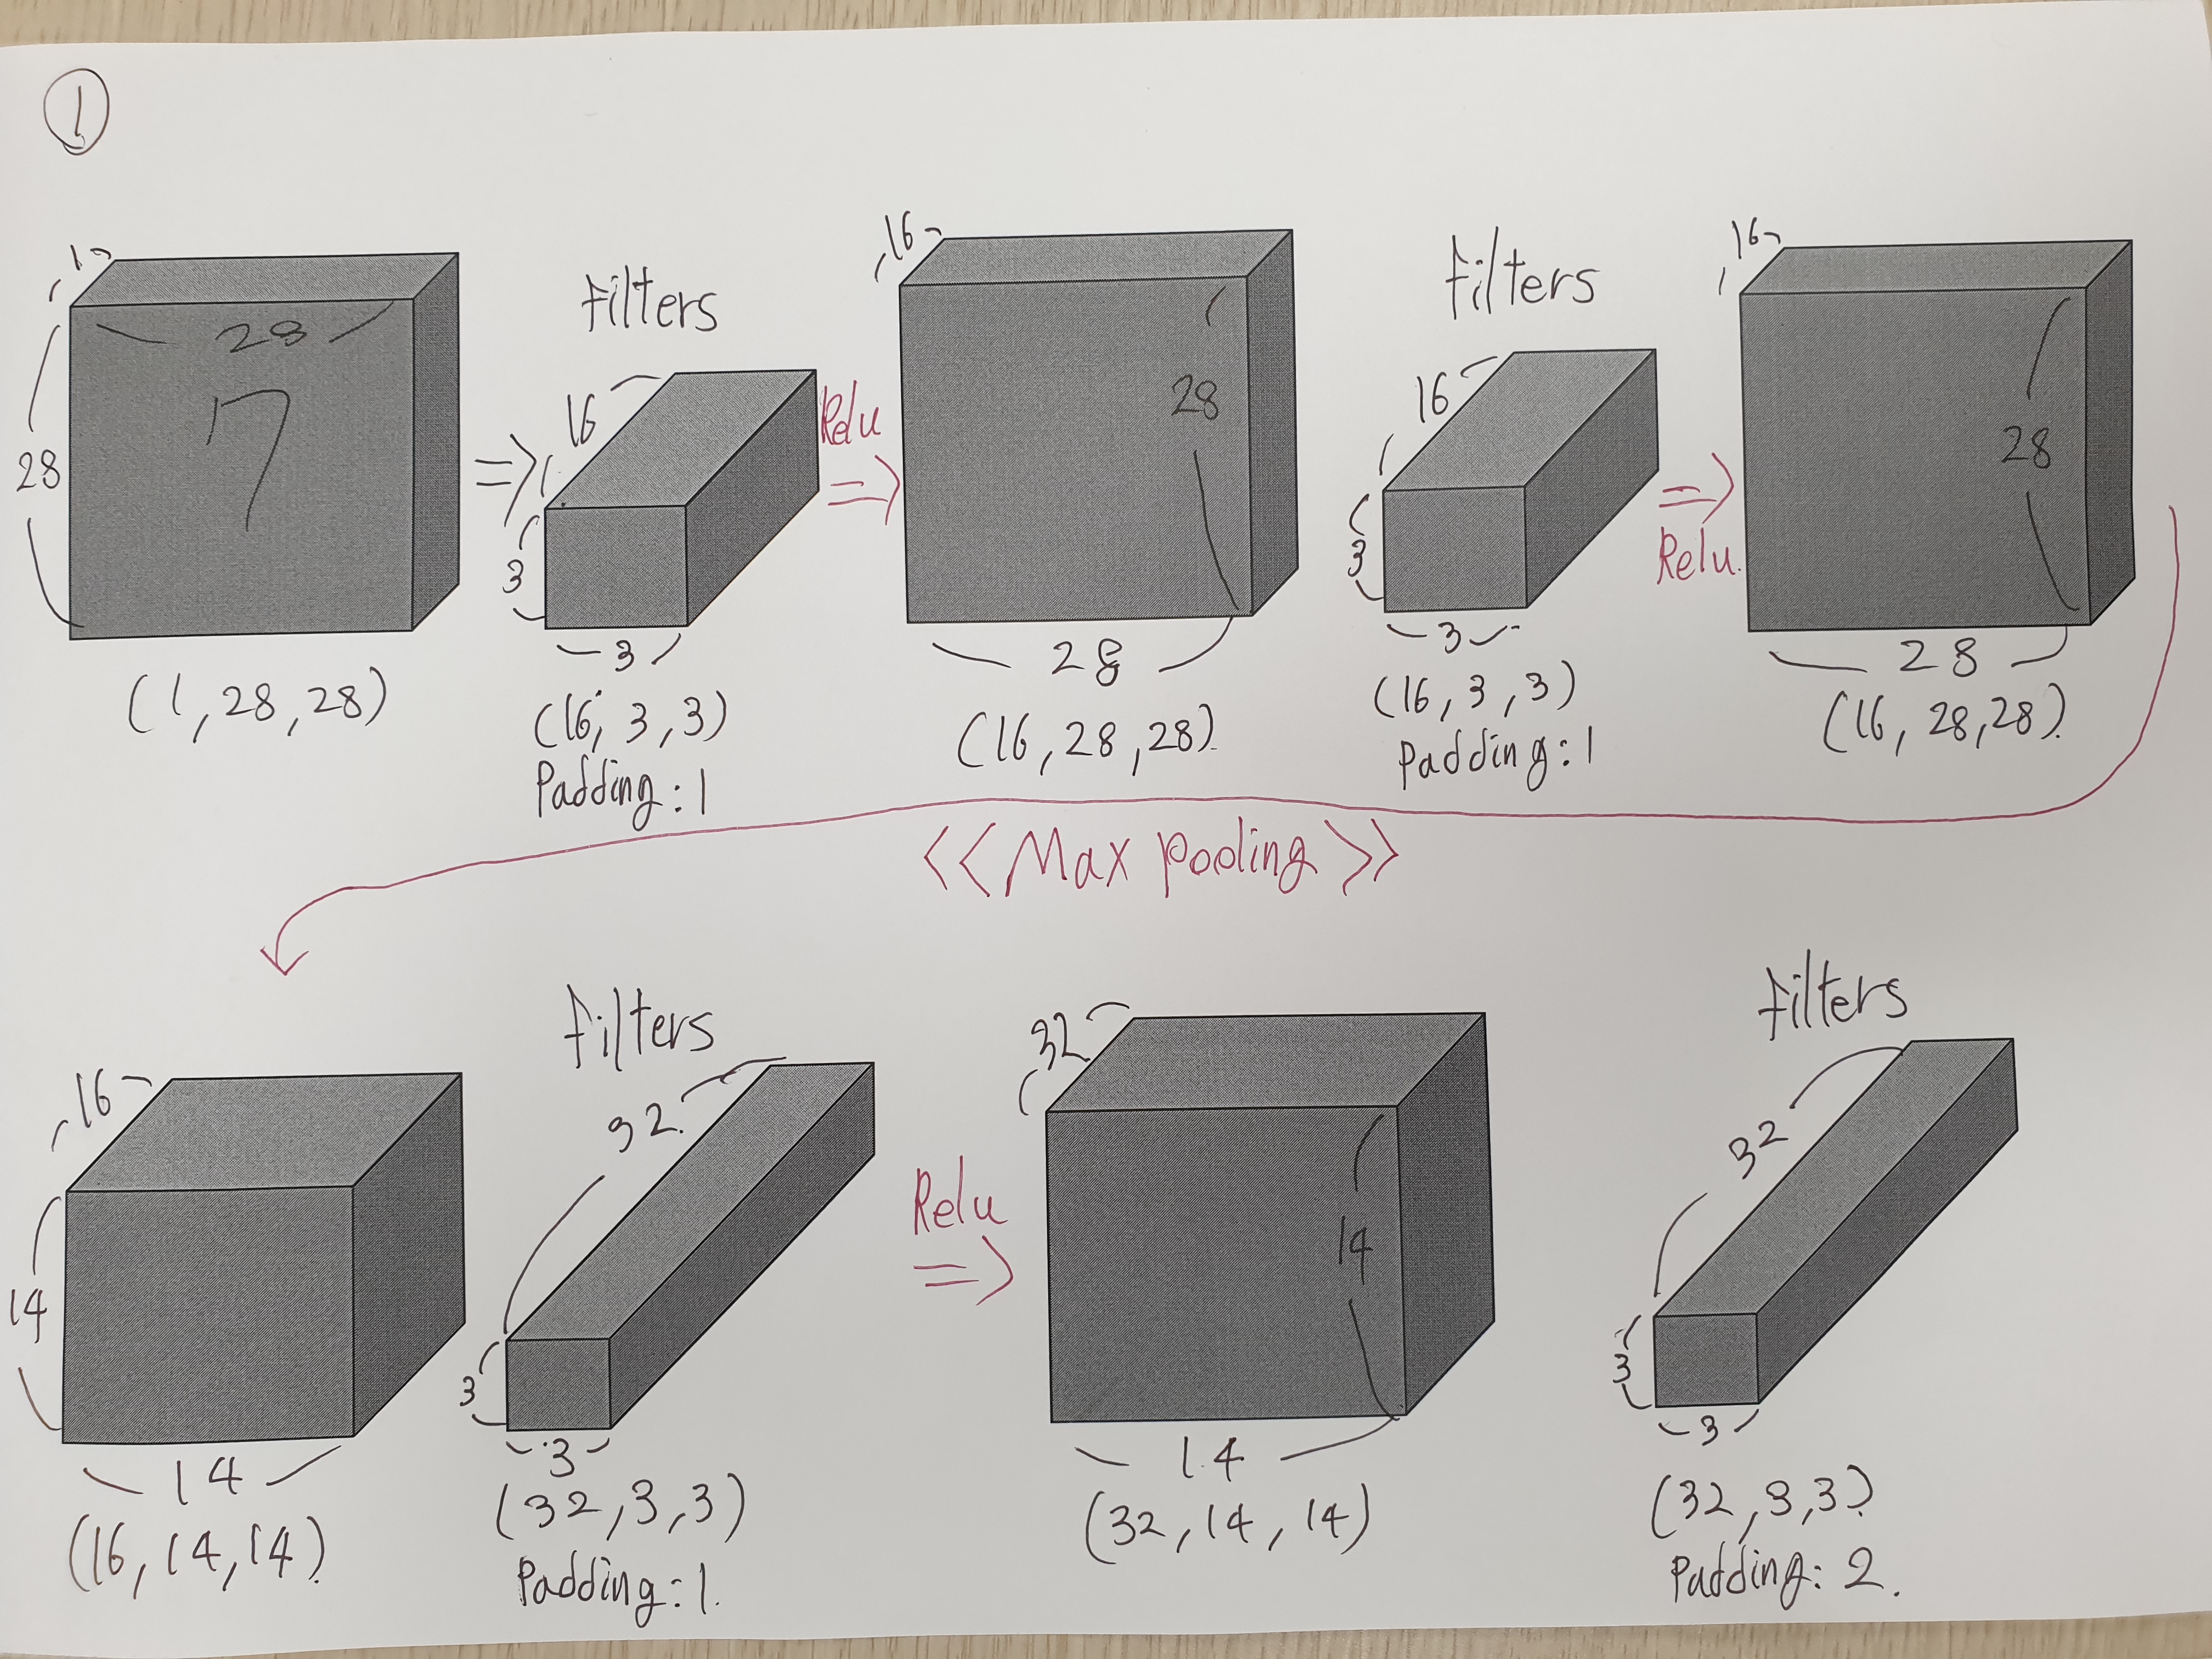 1
1
28
7
28
(1,28,28)
Filters
16
1
3
3
(16,3,3)
Padding:1
Relu
=>
=>
16
28
28
(16,28,28).
Filters
16
3
3
(16,3,3)
Padding:1
=>
Relu.
16
28
28
(16,28,28).
<<Max pooling>>
16
14
14
(16,14,14).
Filters
32.
3
3
(32,3,3)
Padding:1.
Relu
=>
32
14
14
(32,14,14)
Filters
32
3
3
(32,3,3)
Padding:2.